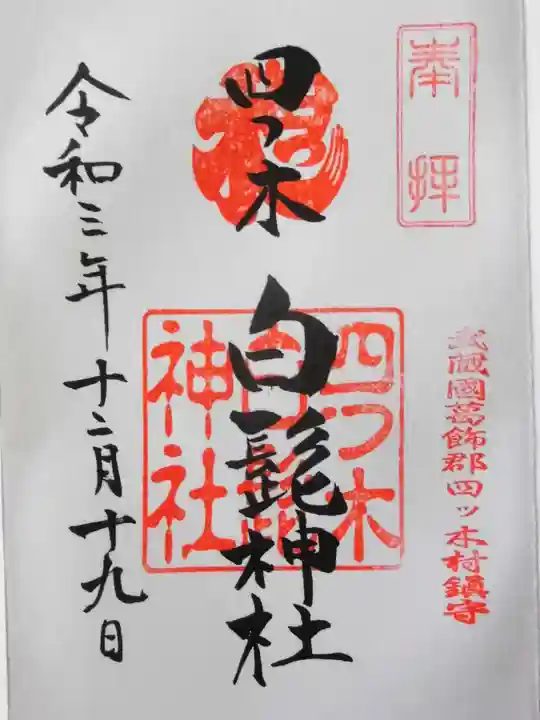 奉拝
武蔵國葛飾郡四ッ木村鎮守
四つ木
白髭神社
四つ木
白髭
神社
令和三年十二月十九日